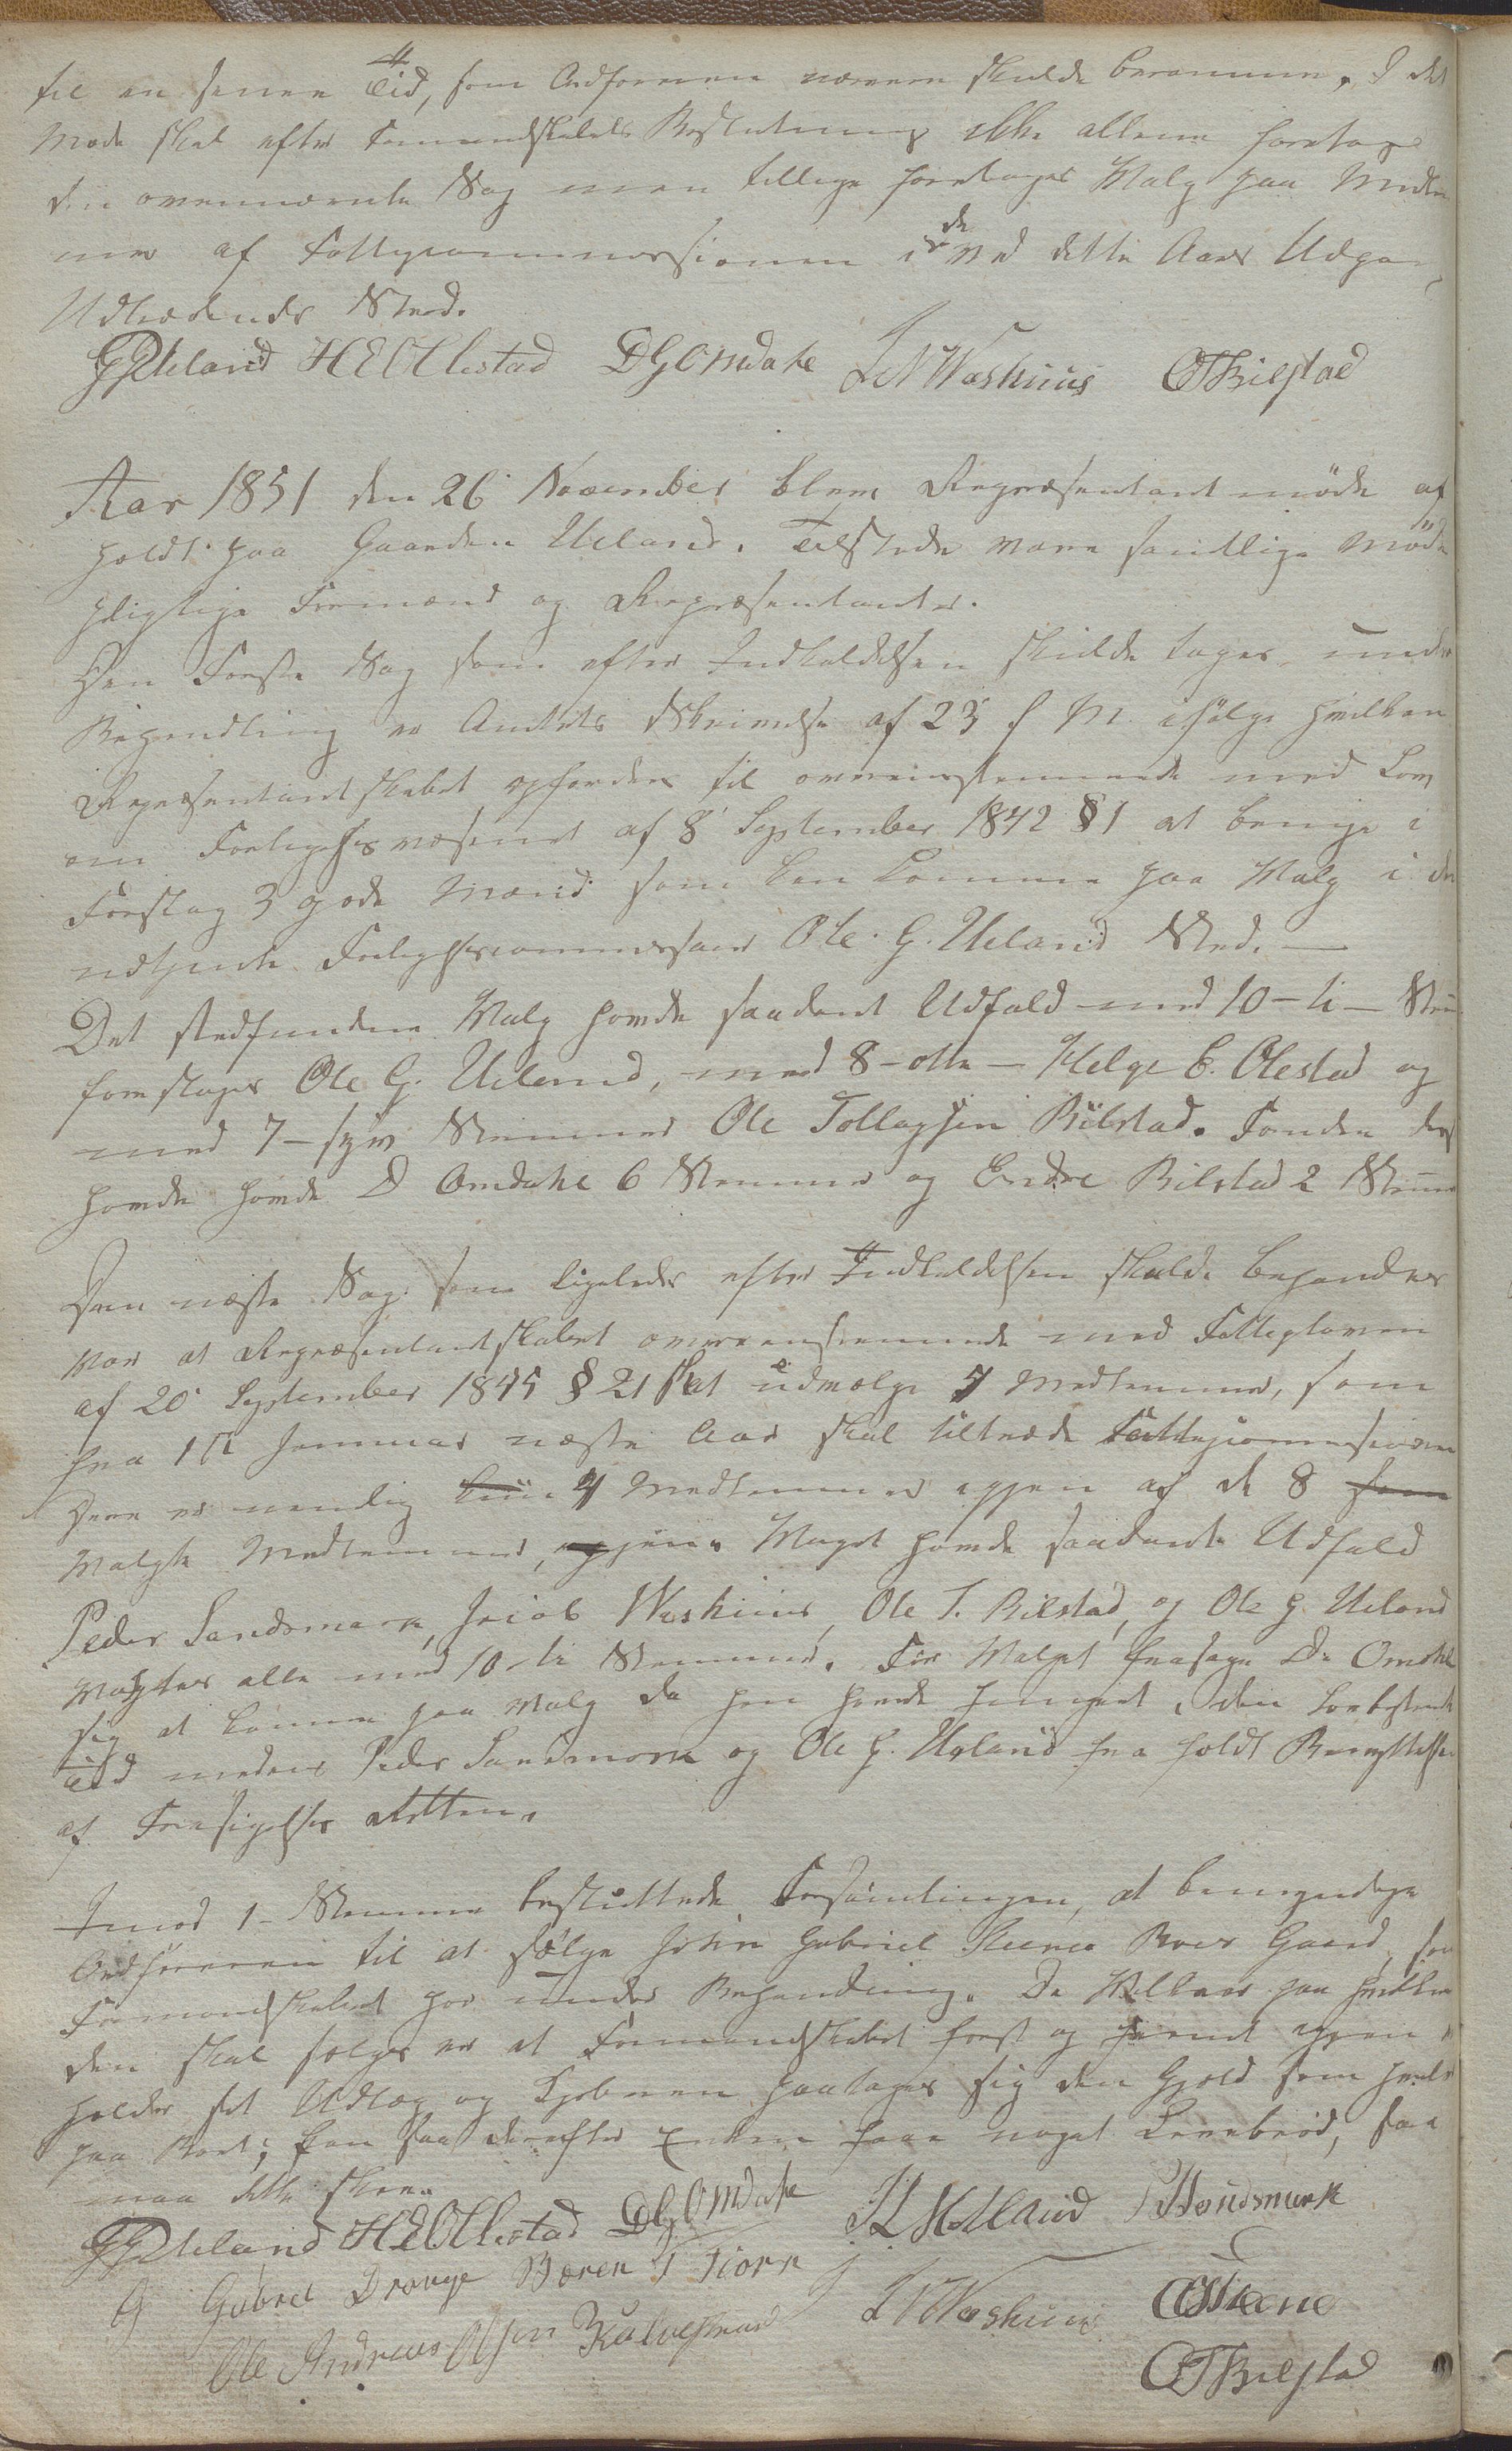 til en senere Tid, som Ordføreren nærmere skulde beramme. I det
Møde skal efter Formandskabets Beslutning ikke allene foretages
den ovennævnte Sag men tillige foretages Valg paa Medlem
mer af Fattigcommissionen i de ved dette Aars Udgang
Udtrædendes Sted.
GGUeland HEOllestad DGOmdahl JNWashuus OTBilstad
Aar 1851 den 26 November blev Repræsentantmøde af
holdt paa Gaarden Ueland. Tilstede vare samtlige Møde
pligtige Formænd og Repræsentanter.
Den Første Sag som efter Indkaldelsen skulde tages under
Behandling er Amtets Skrivelse af 23 f M. ifølge hvilken
Repræsentantskabet opfordres til overeinstemmende med Lov
om Forligelsesvæsenet af 8 September 1842 § 1 at bringe i
Forslag 3 gode Mænd som kan komme paa Valg i den
udtjente Forligelsescommissair Ole G. Ueland Sted. —
Det stedfundne Valg havde saadant Udfald med 10 - ti - Stem
foreslages Ole G. Ueland, med 8 - otte - Helge E. Olestad og
med 7 - syv Stemmer Ole Tollagsen Bilstad. Foruden des
havde havde D Omdahl 6 Stemmer og Endre Bilstad 2 Stemmer
Den næste Sag som ligeledes efter Indkaldelsen skulde behandles
var at Repræsentantskabet overeensstemmende med Fattigloven
af 20 September 1845 § 21 skal udvælge 4 Medlemmer, som
fra 1ste Januar næste Aar skal tiltræde Fattigcommissionen
Der er nemlig 4 Medlemmer igjen af de 8
Valgte Medlemmer. Valget havde saadant Udfald
Peder Sandsmark, Jacob Washuus, Ole T. Bilstad, og Ole G. Ueland
valgtes alle med 10 - ti Stemmer. Før Valget frasagde D. Omdahl
sig at komme paa Valg da han havde fungeret i den Lovbestemte
Tid medens Peder Sandsmark og Ole G. Ueland fra holdt Benyttelsen
af Frasigelses Retten.
Imod 1 - Stemme besluttede Forsamlingen, at bemyndige
Ordføreren til at sælge John Gabriel Steenes Gaard, som
Formandskabet har under Behandling. De Vilkaar paa hvilken
den skal sælges er at Formandskabet først og fremst igjen er
holder sit Udlæg og Kjøberen paatager sig den Gjæld som hviler
paa; kan saa derefter Enken faae noget Levebrød, saa
maa dette skee.
GGUeland HEOllestad DGOmdahl Sandsmark
G Gabriel Drange Søren T Fiorn JNWashuus
Ole Andreas Olsen OSteene
OTBilstad